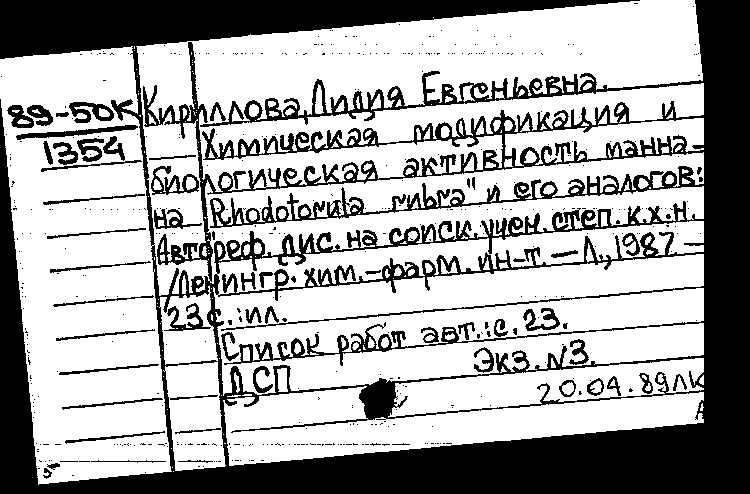 89-50К
1354
Кириллова, Лидия Евгеньевна.
Химическая модификация и
биологическая активность манна-
на "Rhodotorula rubra" и его аналогов:
Автореф. дис. на соиск. учен. степ. к.х.н.
/Ленингр. хим.-фарм. ин-т. — Л., 1987 —
23 с. : ил.
Список работ авт.: с. 23.
ДСП Экз. №3.
20.04.89ЛК